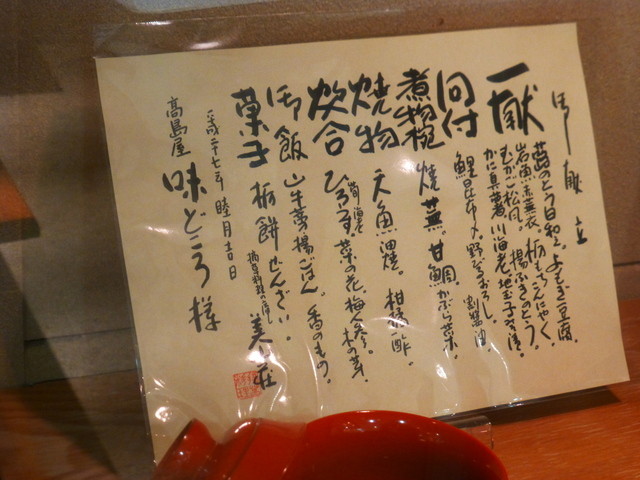 御献立
一献
蕗のとう日和え。よもぎ豆腐。
岩魚燕巣衣。栃もちこんにゃく。
むかご松風。揚ふきのとう。
かに真薯。川海老。地玉子味噌漬。
向付
鯉昆布〆。野びるおろし。
割醤油。
煮物椀
焼蕪。甘鯛。かぶら菜。
焼物
天魚油焼。柑橘酢。
炊合
ひろうす。菜の花。梅人参。木の芽。
御飯
山牛蒡揚ごはん。香のもの。
菓子
栃餅ぜんざい。
摘草料理の宿
美山荘
平成二十七年 睦月吉日
高島屋 味どころ 様